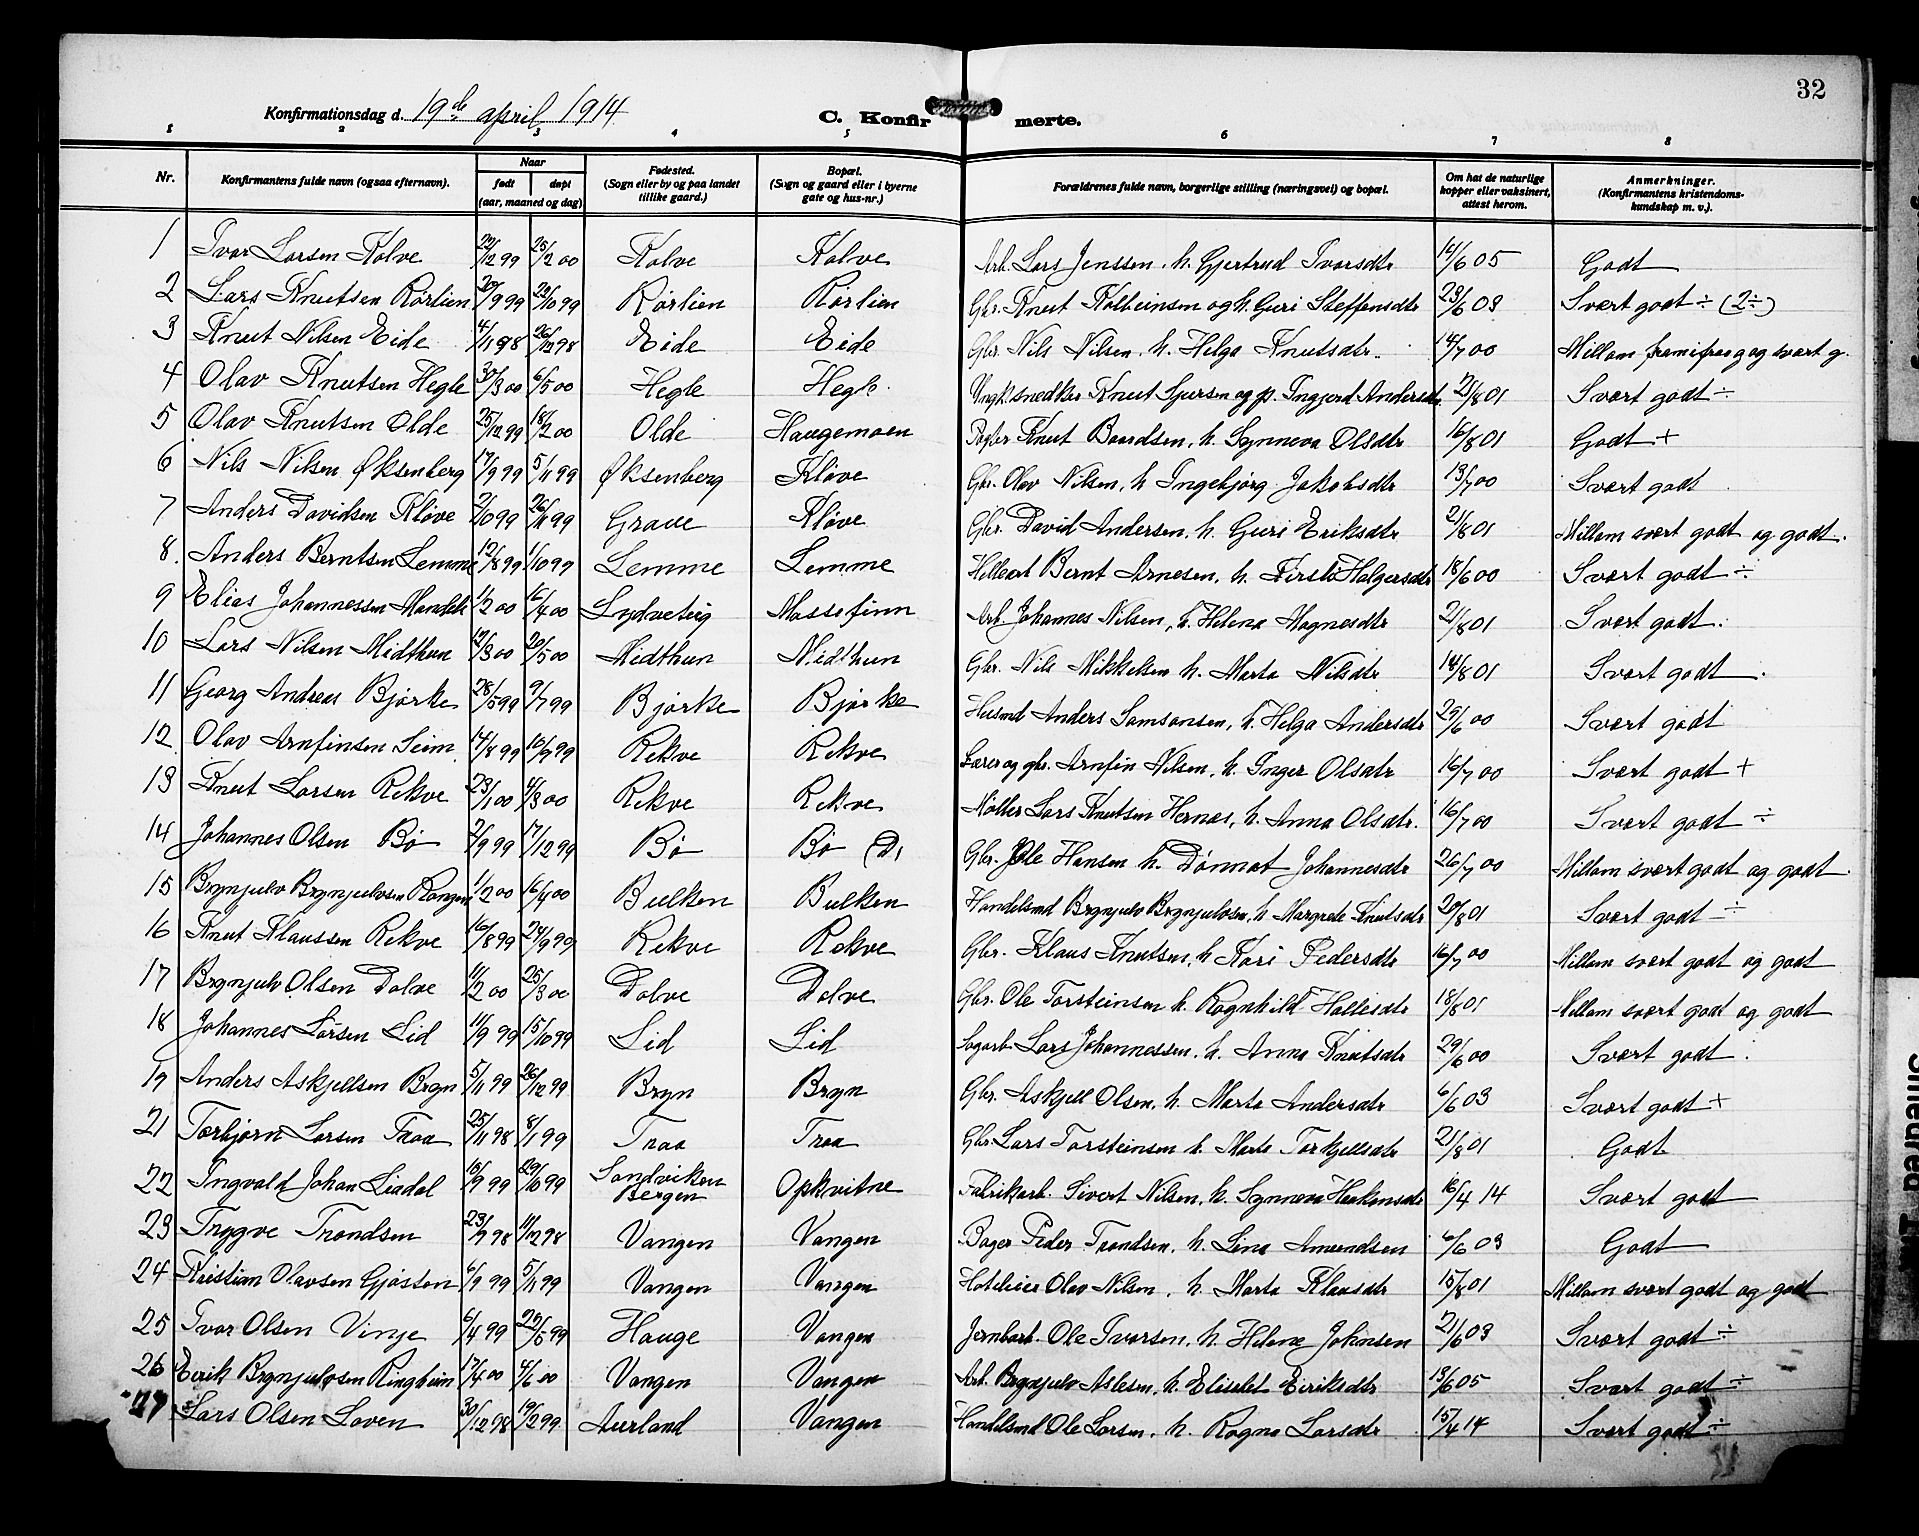 32
Konfirmationsdag d. 19de april 1914 C. Konfirmerte.
1 2 3 4 5 6 7 8
Nr. Konfirmantens fulde navn (ogsaa efternavn). Naar født døpt (aar, maaned og dag) Fødested. (Sogn eller by og paa landet tillike gaard.) Bopæl. (Sogn og gaard eller i byerne gate og hus-nr.) Forældrenes fulde navn, borgerlige stilling (næringsvei) og bopæl. Om hat de naturlige kopper eller vaksinert, attest herom. Anmerkninger. (Konfirmantens kristendomskundskap m. v.).
1 Ivar Larsen Kolve 22/12 99 25/2 00 Kolve Kolve Arb. Lars Jenssen, h. Gjertrud Ivarsdtr 14/6 05 Godt
2 Lars Knutsen Rørlien 20/9 99 22/10 99 Rørlien Rørlien Gbr. Knut Kolbeinsen og h. Guri Steffensdtr 23/6 03 Svært godt ÷ (2÷)
3 Knut Nilsen Eide 4/11 98 26/12 98 Eide Eide Gbr. Nils Nilsen, h. Helga Knutsdtr. 14/7 00 Millom framifraa og svært g.
4 Olav Knutsen Hegle 30/3 00 6/5 00 Hegle Hegle Knut og p. Ingjerd Andersdtr 21/8 01 Svært godt ÷
5 Olav Knutsen Olde 25/12 99 18/2 00 Olde Haugamoen Knut Baardsen, h. Synneva Olsdtr 16/8 01 Godt +
6 Nils Nilsen Øksenberg 17/9 99 5/11 99 Øksenberg Kløve Gbr. Olav Nilsen, h. Ingebjørg Jakobsdtr 13/7 00 Svært godt
7 Anders Davidsen Kløve 2/10 99 26/11 99 Graue Kløve Gbr. David Andersen, h. Guri Eriksdtr 21/8 01 Millom svært godt og godt.
8. Anders Berntsen Lemme 12/8 99 1/10 99 Lemme Lemme Bernt Arnesen, h. Kirsti Holgersdtr 18/6 00 Svært godt ÷
9 Elias Johannessen 1/2 00 16/4 00 Lydvateig Arb. Johannes Nilsen, h. Helena Magnesdtr 21/8 01 Svært godt.
10 Lars Nilsen Midthun 12/3 00 20/5 00 Midthun Midthun Gbr. Nils Mikkelsen h. Marta Nilsdtr 14/8 01 Svært godt.
11 Georg Andreas Bjørke 28/5 99 9/7 99 Bjørke Bjørke Husmd Anders Samsonsen, h. Helga Andersdtr 29/6 00 Svært godt
12 Olav Arnfinsen Seim 14/8 99 10/9 99 Rekve Rekve Lærer og gbr. Arnfin Nilsen, h. Inger Olsdtr 16/7 00 Svært godt +
13 Knut Larsen Rekve 23/1 00 4/3 00 Rekve Rekve Møller Lars Knutsen Hernes, h. Anna Olsdtr. 16/7 00 Svært godt ÷
14 Johannes Olsen Bø 2/9 99 17/12 99 Bø Bø (D) Gbr. Ole Hansen h. Dønnat Johannesdtr 26/7 00 Millom svært godt og godt.
15 Brynjulv Brynjulvsen Rongen 1/2 00 16/4 00 Bulken Bulken Handelsmd Brynjulv Brynjulvsen, h. Margrete Knutsdtr 20/8 01 Svært godt ÷
16 Knut Klaussen Rekve 16/8 99 24/9 99 Rekve Rekve Gbr. Klaus Knutsen, h. Kari Pedersdtr 16/7 00 Millom svært godt og godt
17 Brynjulv Olsen Dolve 11/2 00 25/3 00 Dolve Dolve Gbr. Ole Torsteinsen h. Ragnhild Hallesdtr 18/8 01 Millom svært godt og godt
18 Johannes Larsen Lid 11/9 99 15/10 99 Lid Lid Sogarb. Lars Johannessen, h. Anna Knutsdtr 29/6 00 Svært godt.
19 Anders Askjellsen Bryn 5/11 99 26/12 99 Bryn Bryn Gbr. Askjell Olsen, h. Marta Andersdtr 6/6 03 Svært godt +
21 Torbjørn Larsen Traa 25/11 98 8/1 99 Traa Traa Gbr. Lars Torsteinsen h. Marta Torkjellsdtr 21/8 01 Godt
22 Ingvald Johan Liadal 10/9 99 29/10 99 Sandviken Bergen Opkvitne Fabrikarb. Sivert Nilsen, h. Synneva Haakensdtr 16/4 14 Svært godt
23 Trygve Trondsen 23/9 98 11/12 98 Vangen Vangen Bager Peder Trondsen, h. Lina Amundsen 6/6 03 Godt
24 Kristian Olavsen Gjøstein 6/9 99 5/11 99 Vangen Vangen Hoteleier Olav Nilsen, h. Marta Klausdtr 15/8 01 Millom svært godt og godt
25 Ivar Olsen Vinje 6/4 99 22/5 99 Hauge Vangen Jernbarb. Ole Ivarsen, h. Helena Johnsen 21/6 03 Svært godt ÷
26 Eirik Brynjulvsen Ringheim 17/4 00 4/6 00 Vangen Vangen Arb. Brynjulv Aslesen, h. Elisabet Eiriksdtr 13/6 05 Svært godt ÷
27 Lars Olsen Loven 30/12 98 19/2 99 Aurland Vangen Handelsmd Ole Larsen, h. Ragna Larsdtr 15/4 14 Svært godt ÷